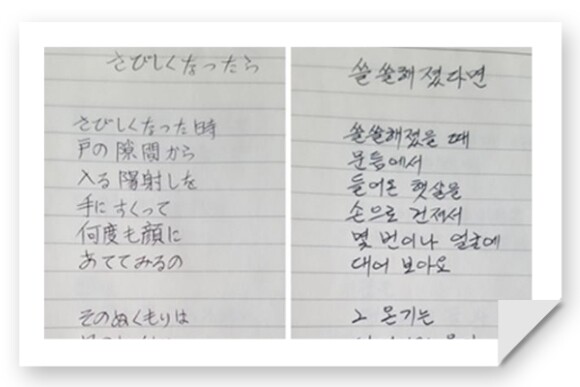 さびしくなったら
さびしくなった時
戸の隙間から
入る陽射しを
手にすくって
何度も顔に
あててみるの
そのぬくもりは
쓸쓸해졌다면
쓸쓸해졌을 때
문틈에서
들어온 햇살을
손으로 건져서
몇 번이나 얼굴에
대어 보아요
그 온기는